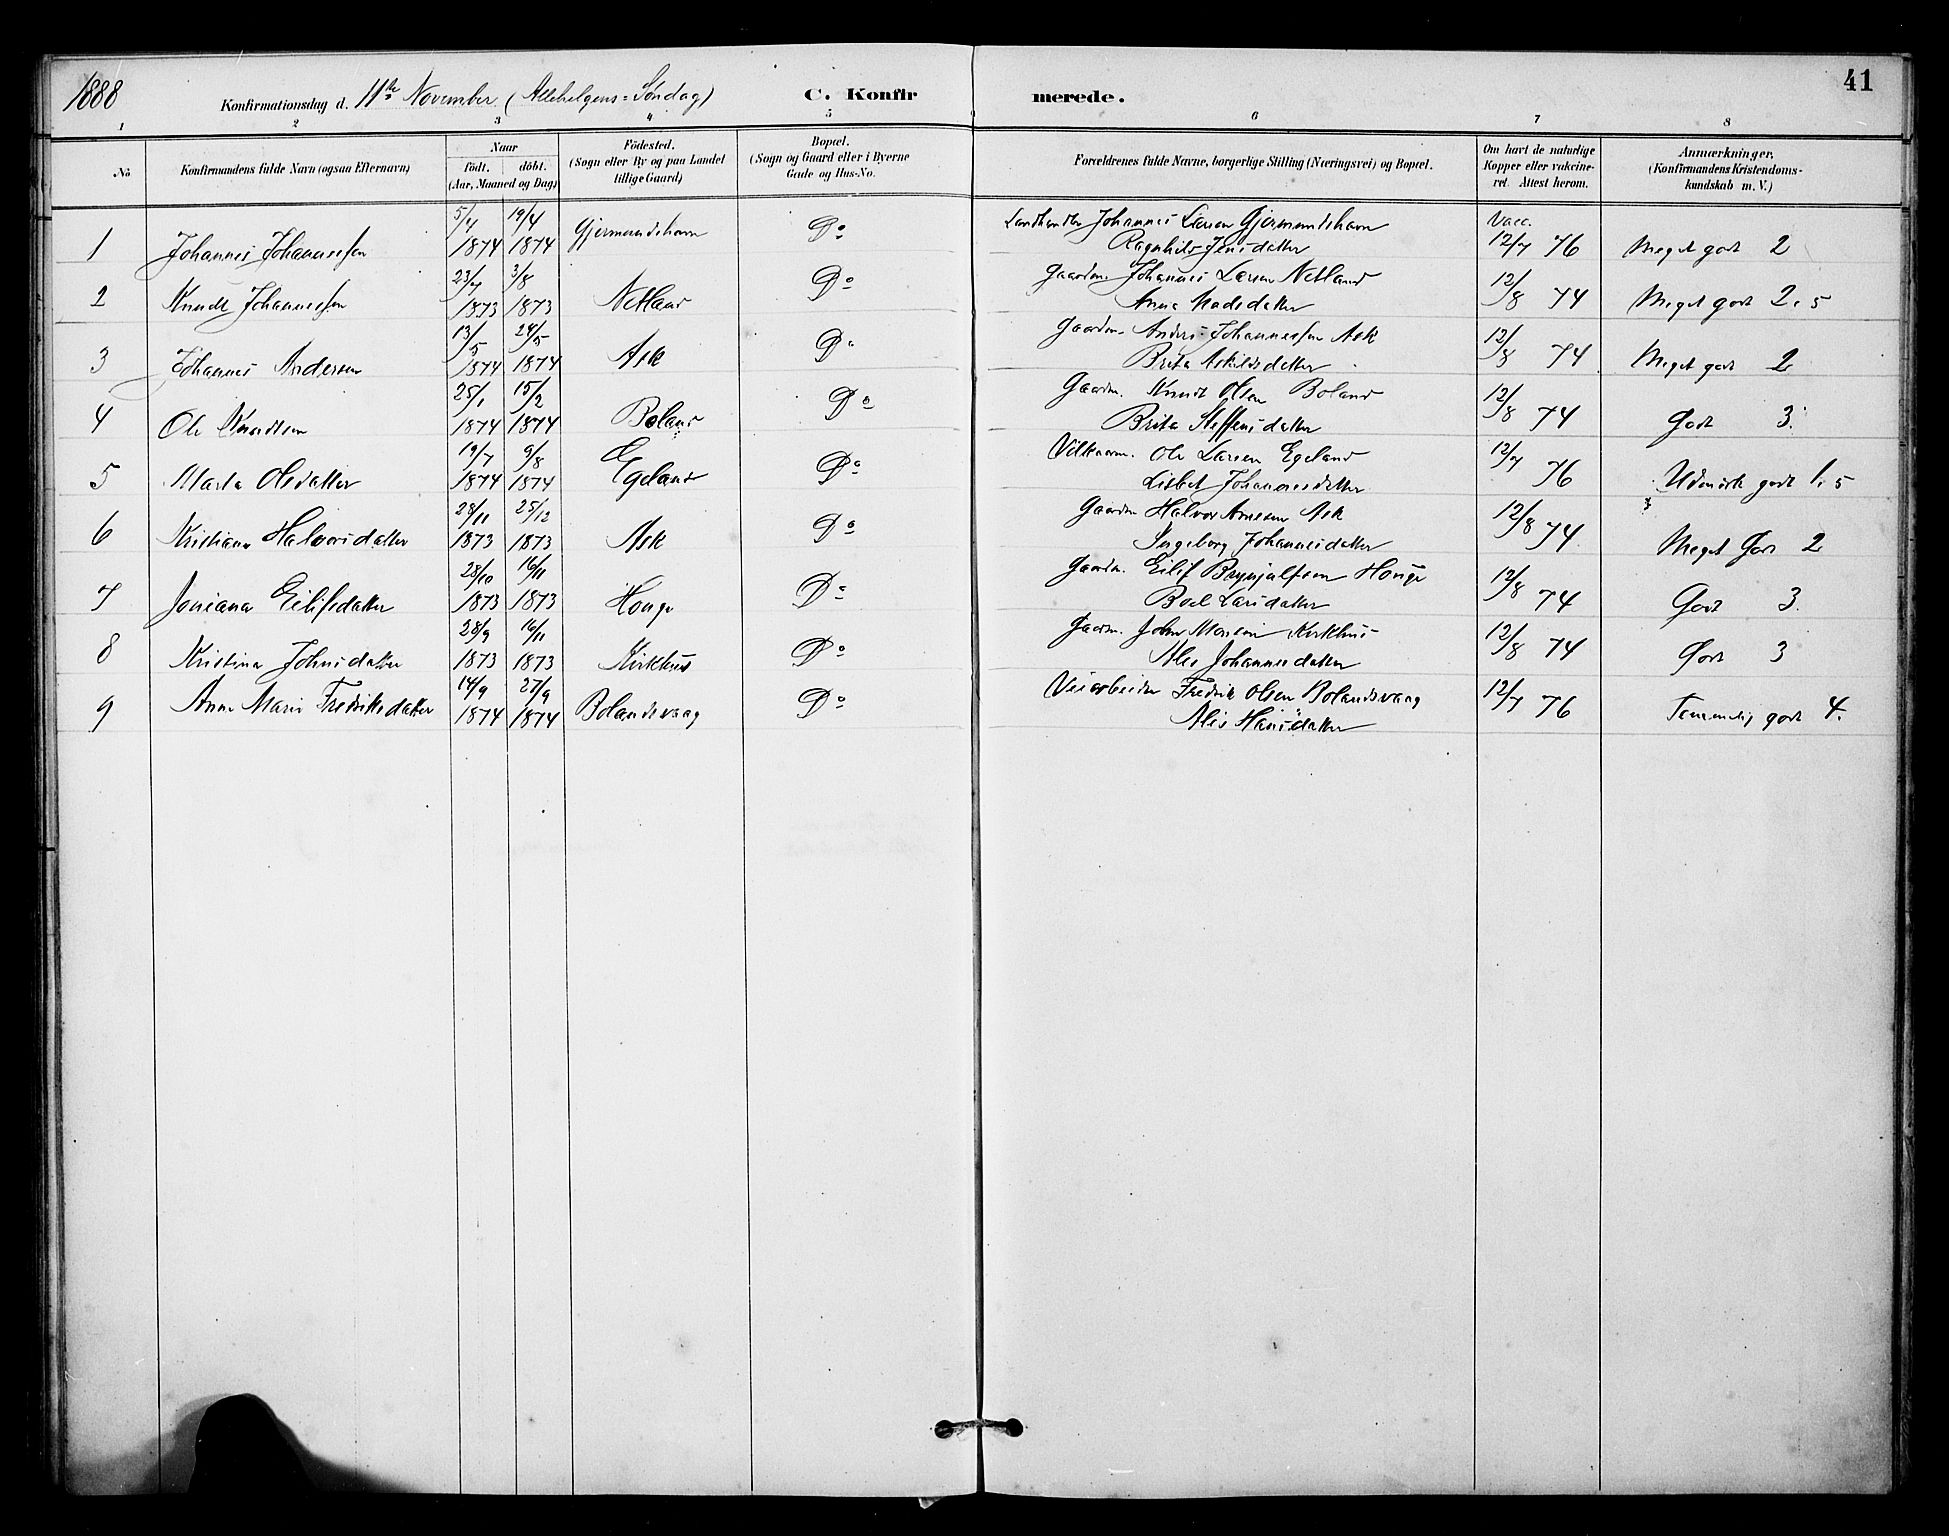 1888 Konfirmationsdag d. 11te November (Allehelgens=Søndag) C. Konfirmerede. 41
1 2 3 4 5 6 7 8
No Konfirmandens fulde Navn (ogsaa Efternavn) Naar født. døbt. (Aar, Maaned og Dag) Födested. (Sogn eller By og paa Landet tillige Gaard) Bopæl. (Sogn og Gaard eller i Byerne Gade og Hus-No. Forældrenes fulde Navne, borgerlige Stilling (Næringsvei) og Bopæl. Om havt de naturlige Kopper eller vakcineret. Attest herom. Anmærkninger. (Konfirmandens Kristendomskundskab m. V.)
1 Johannes Johannessen 5/4 1874 19/4 1874 Gjermundshavn Do Landhandler Johannes Larsen Gjermundshavn Vacc.
Ragnhild Jensdatter 12/7 76 Meget godt 2
2 Knudt Johannessen 23/7 1873 3/8 1873 Netland Do Gaardm. Johannes Larsen Netland
Anna Madsdatter 12/8 74 Meget godt 2,5
3 Johannes Andersen 13/5 1874 24/5 1874 Ask Do Gaardm. Anders Johannessen Ask
Brita Askildsdatter 12/8 74 Meget godt 2
4 Ole Knudtsen 25/1 1874 15/2 1874 Boland Do Gaardm. Knudt Olsen Boland
Brita Steffensdatter 12/8 74 Godt 3.
5 Marta Olsdatter 19/7 1874 9/8 1874 Egeland Do Vilkaarm. Ole Larsen Egeland
Lisbet Johannesdatter 12/7 76 Udmærk godt 1,5
6 Kristiane Halvorsdatter 28/11 1873 25/12 1873 Ask Do Gaardm Halvor Arnesen Ask
Ingeborg Johannesdatter 12/8 74 Meget Godt 2
7 Joniana Eilifsdatter 28/10 1873 16/11 1873 Houge Do Gaardm. Eilif Brynjulfsen Houge
Boel Larsdatter 12/8 74 Godt 3.
8 Kristina Johnsdatter 28/9 1873 16/11 1873 Kirkhus Do Gaardm. John Monsen Kirkhus
Alis Johannesdatter 12/8 74 Godt 3
9 Anne Marie Fredriksdatter 14/9 1874 27/9 1874 Bolandsvaag Do Veiarbeider Fredrik Olsen Bolandsvaag
Alis Hansdatter 12/7 76 Temmelig godt 4.